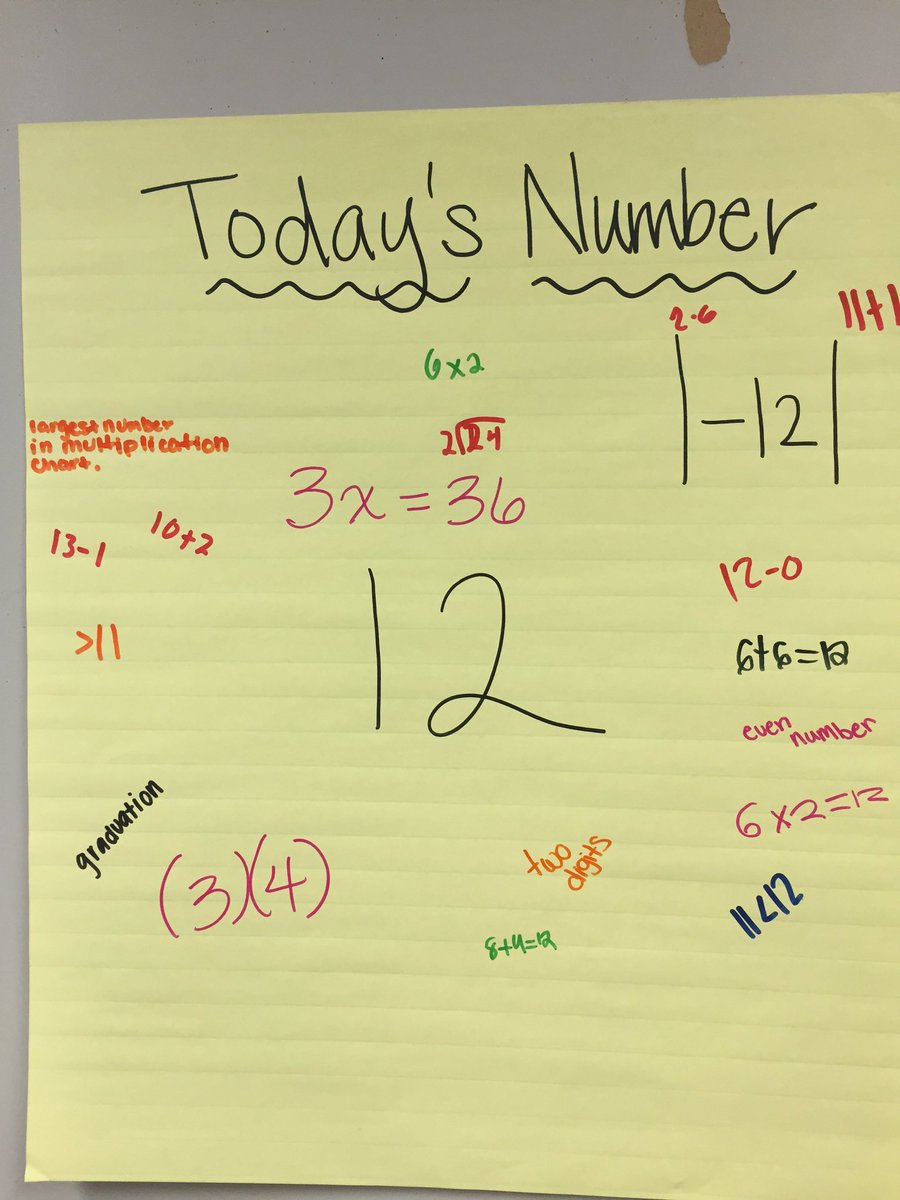 Today's Number
2·6
11+1
6×2
|-12|
largest number
in multiplication
chart.
2√24
3x=36
13-1
10+2
12-0
12
>11
6+6=12
even
number
graduation
6×2=12
(3)(4)
two
digits
11<12
8+4=12